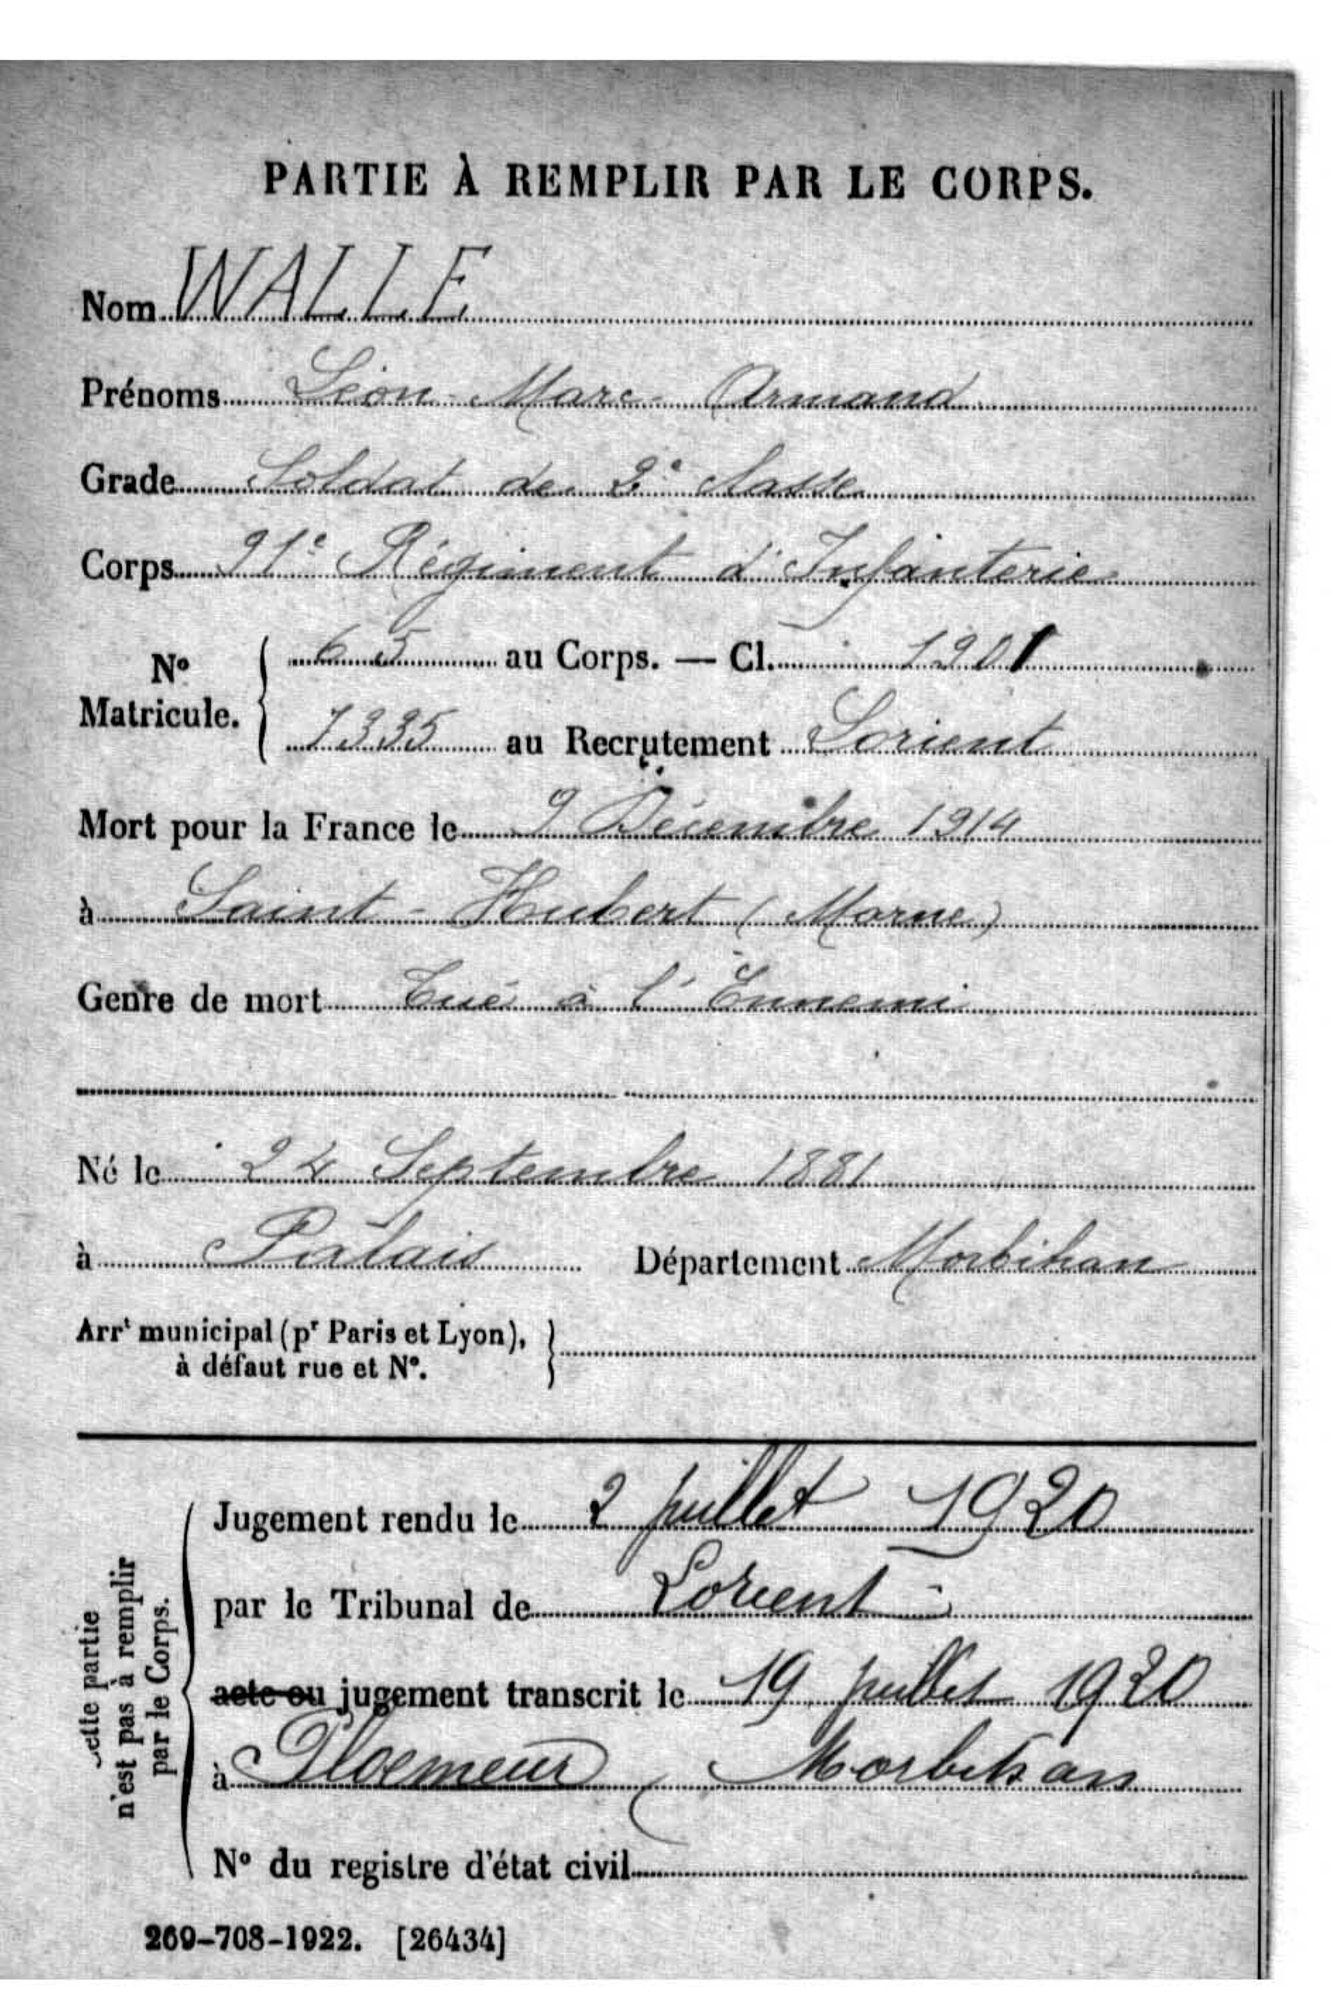 PARTIE À REMPLIR PAR LE CORPS.
Nom WALLE
Prénoms Léon-Marc-Armand
Grade Soldat de 2e classe
Corps 91e Régiment d'Infanterie
No Matricule. { 65 au Corps. — Cl. 1901
7335 au Recrutement Lorient
Mort pour la France le 9 Décembre 1914
à Saint-Hubert (Marne)
Genre de mort Tué à l'Ennemi
Né le 24 Septembre 1881
à Palais Département Morbihan
Arrt municipal (pr Paris et Lyon),
à défaut rue et No.
Cette partie
n'est pas à remplir
par le Corps.
Jugement rendu le 2 juillet 1920
par le Tribunal de Lorient
acte ou jugement transcrit le 19 juillet 1920
à Ploemeur (Morbihan
No du registre d'état civil
269-708-1922. [26434]